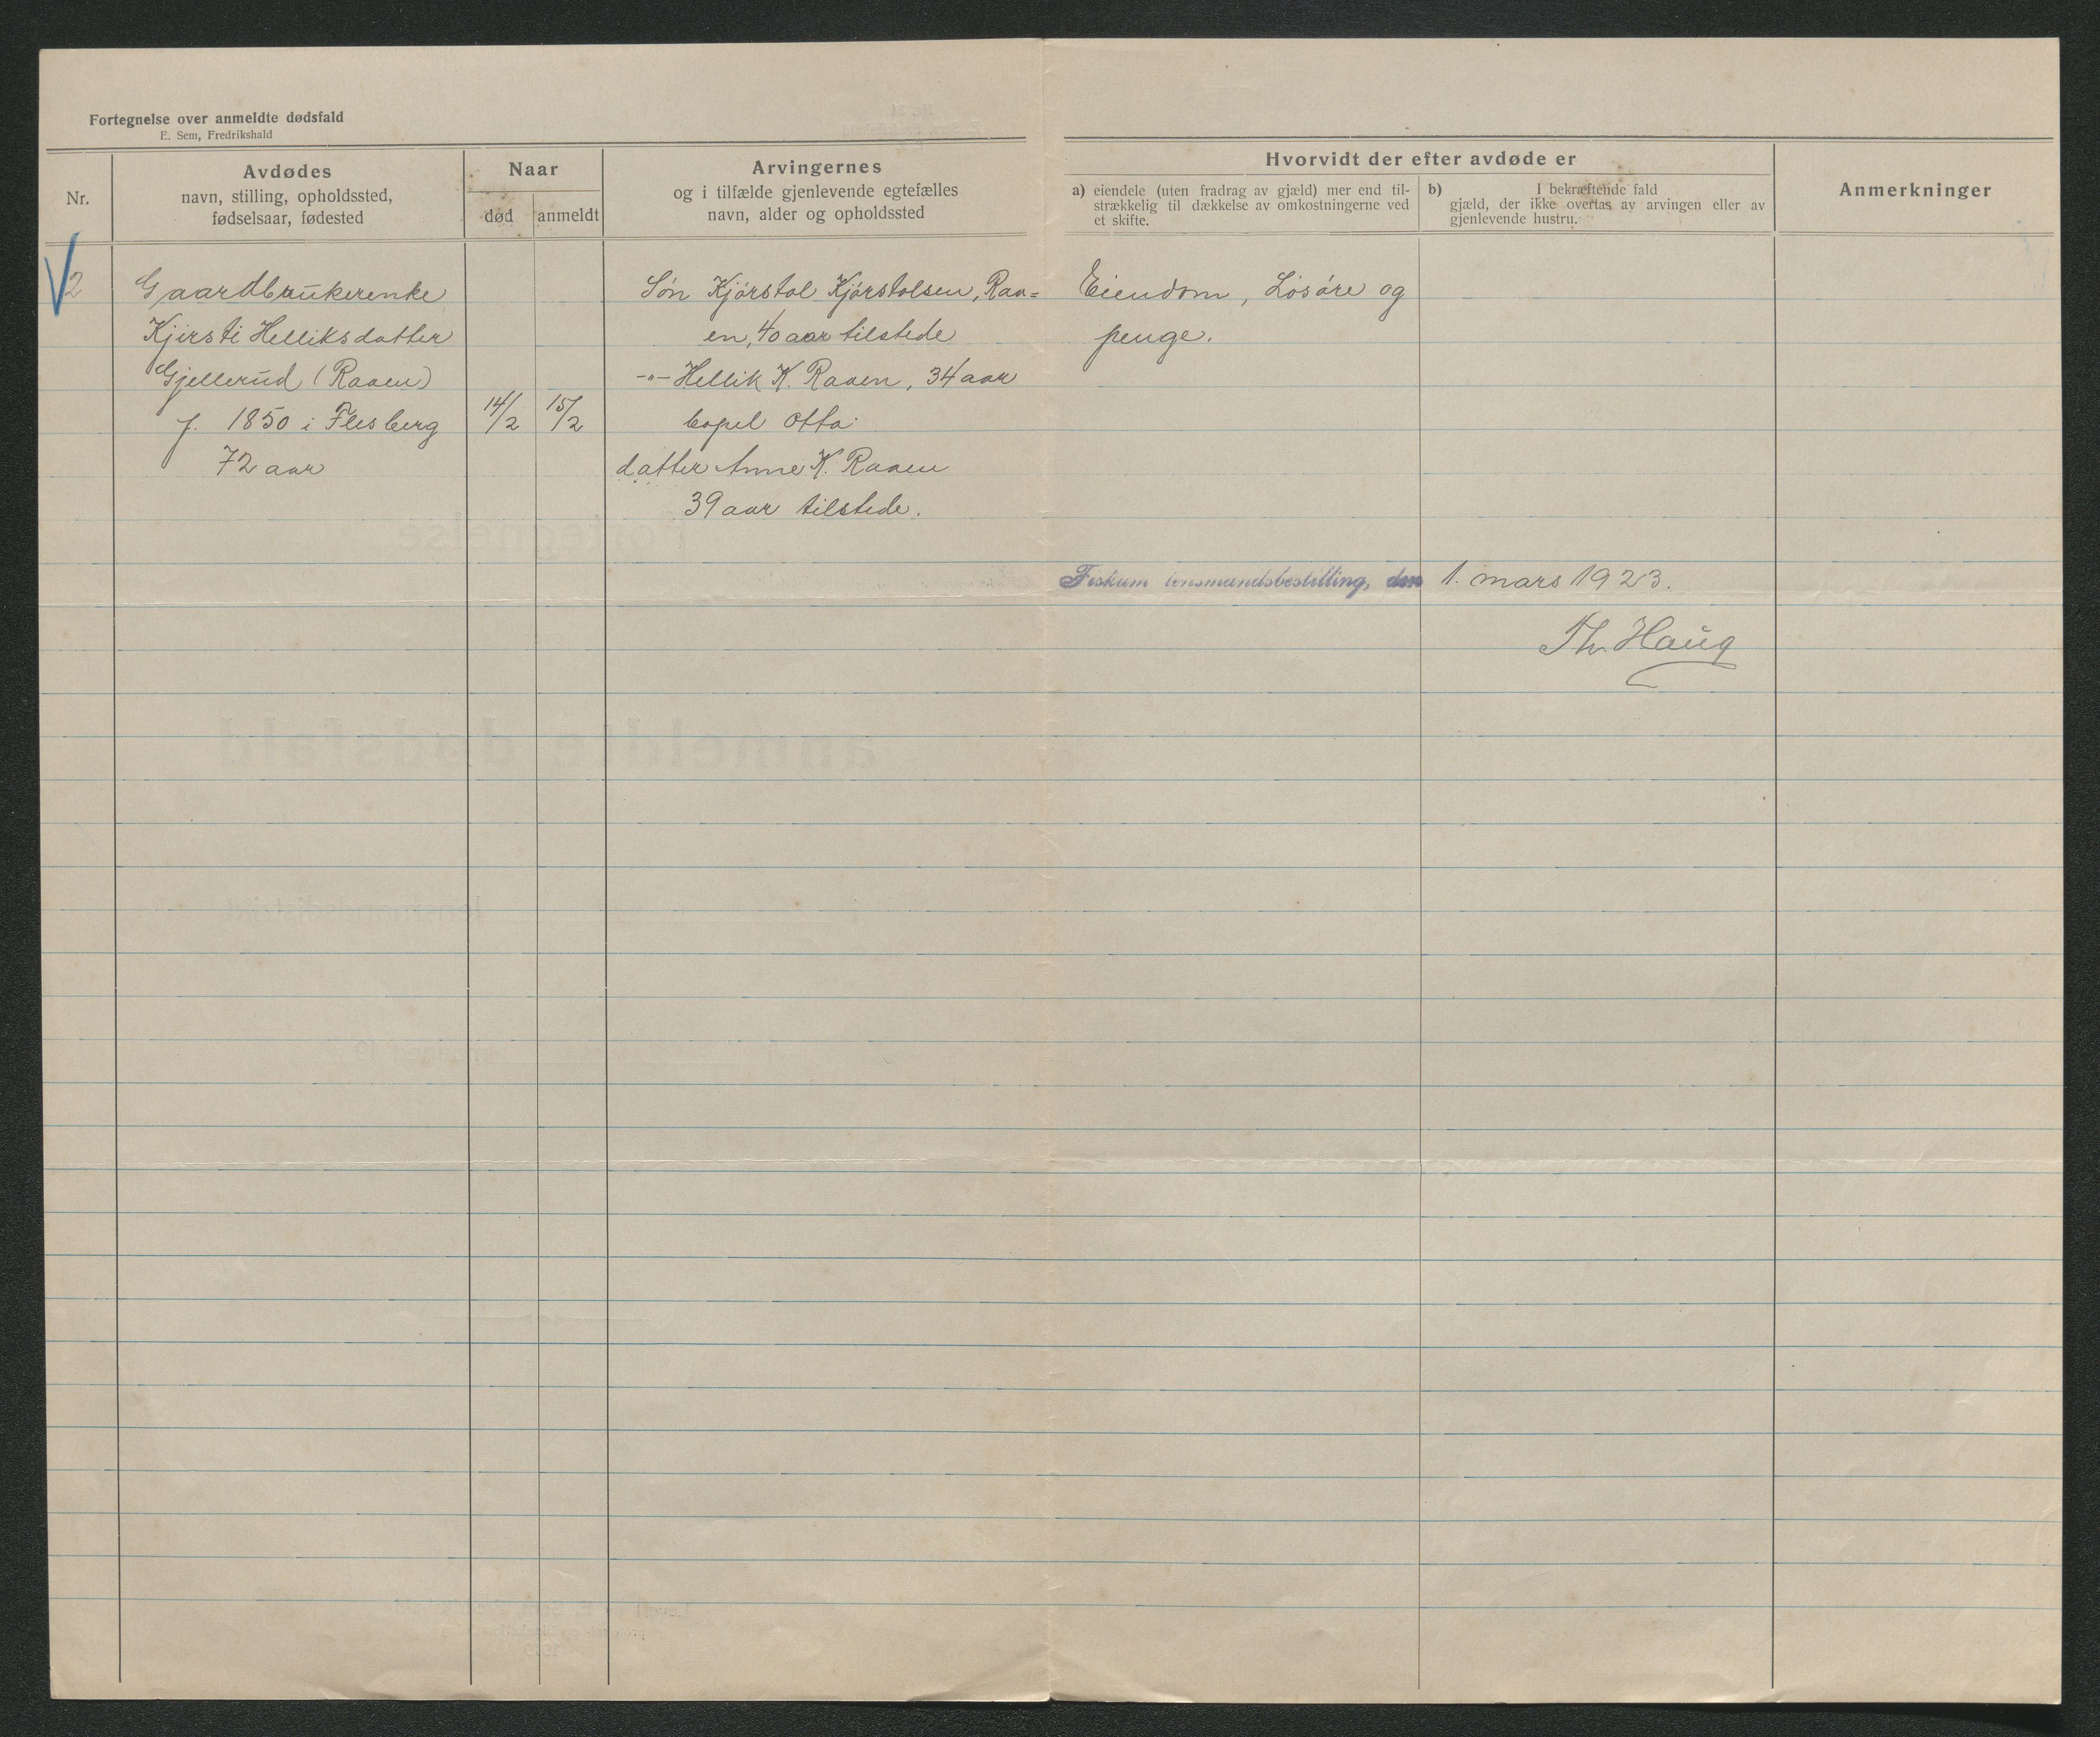 Fortegnelse over anmeldte dødsfald
E. Sem, Fredrikshald
Nr.
Avdødes
navn, stilling, opholdssted,
fødselsaar, fødested
Naar
død
anmeldt
Arvingernes
og i tilfælde gjenlevende egtefælles
navn, alder og opholdssted
Hvorvidt der efter avdøde er
a) eiendele (uten fradrag av gjæld) mer end til-
strækkelig til dækkelse av omkostningerne ved
et skifte.
b) I bekræftende fald
gjæld, der ikke overtas av arvingen eller av
gjenlevende hustru.
Anmerkninger
2
Gaardbrukerenke
Kjirsti Helliksdatter
Gjellerud (Raaen)
f. 1850 i Flesberg
72 aar
14/2
15/2
Søn Kjørstol Kjørstolsen, Raa=
en, 40 aar tilstede
-"- Hellik K. Raaen, 34 aar
bopel Otta
datter Anne K. Raaen
39 aar tilstede.
Eiendom, Løsøre og
penge.
Fiskum lensmandsbestilling, den 1. mars 1923.
Th. Haug